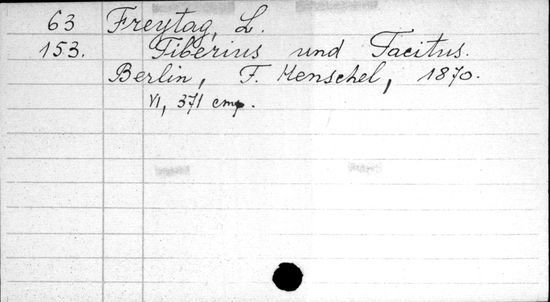 63 Freytag, L.
153. Tiberius und Tacitus.
Berlin, F. Henschel, 1870.
VI, 371 cmp.